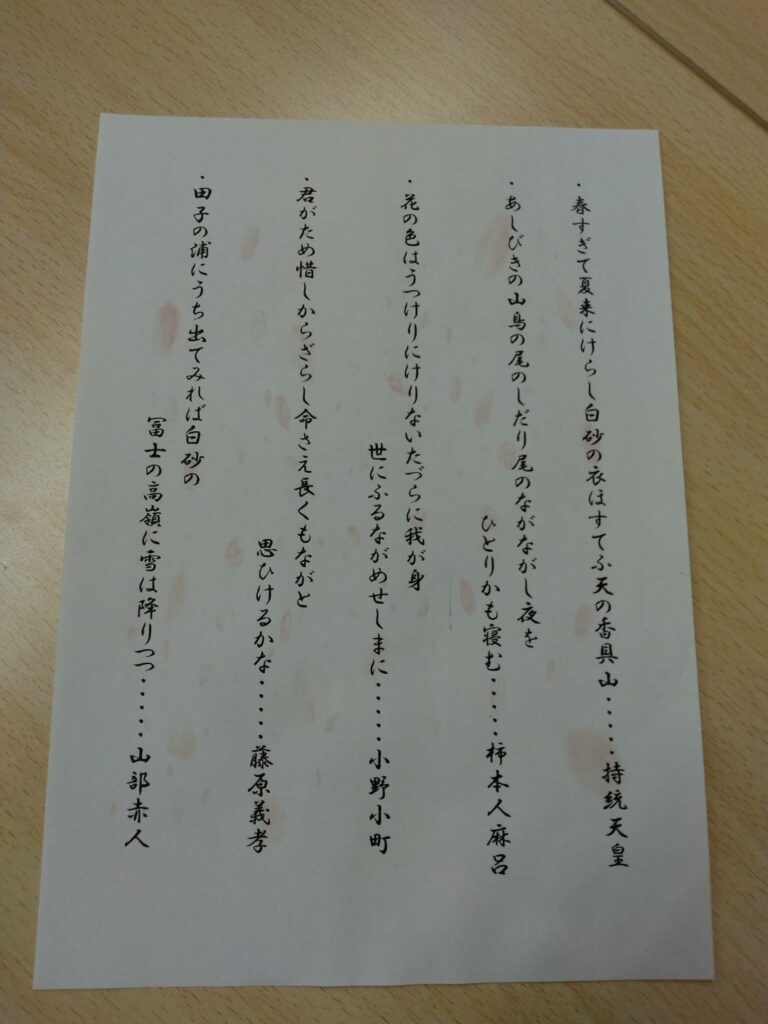 ・春すぎて夏来にけらし白砂の衣ほすてふ天の香具山・・・・・持統天皇
・あしびきの山鳥の尾のしだり尾のながながし夜を
ひとりかも寝む・・・・・柿本人麻呂
・花の色はうつけりにけりないたづらに我が身
世にふるながめせしまに・・・・・小野小町
・君がため惜しからざらし命さえ長くもながと
思ひけるかな・・・・・藤原義孝
・田子の浦にうち出てみれば白砂の
冨士の高嶺に雪は降りつつ・・・・・山部赤人